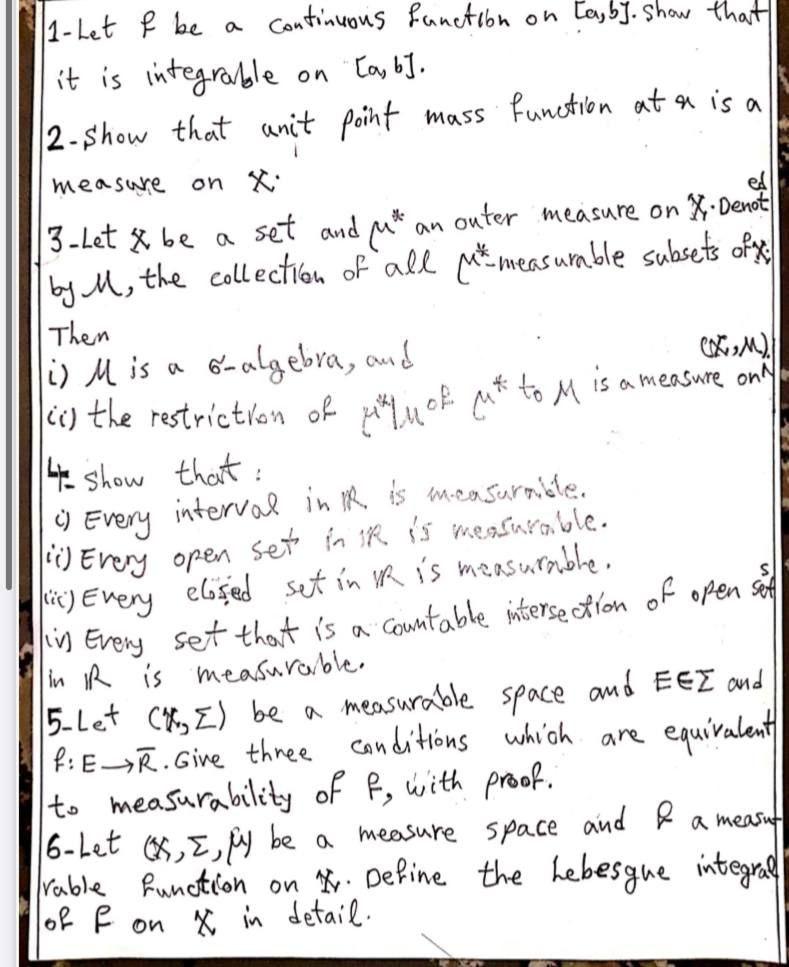 1-Let f be a continuous function on [a,b]. Show that
it is integrable on [a,b].
2-Show that unit point mass function at x is a
measure on X.
3-Let X be a set and μ* an outer measure on X. Denoted
by M, the collection of all μ*-measurable subsets of X;
Then
i) M is a σ-algebra, and
ii) the restriction of μ*|M of μ* to M is a measure on (X,M).
4- Show that :
i) Every interval in ℝ is measurable.
ii) Every open set in ℝ is measurable.
iii) Every closed set in ℝ is measurable.
iv) Every set that is a countable intersection of open sets
in ℝ is measurable.
5-Let (X,Σ) be a measurable space and E∈Σ and
f:E→ℝ̅. Give three conditions which are equivalent
to measurability of f, with proof.
6-Let (X,Σ,μ) be a measure space and f a measu-
rable function on X. Define the Lebesgue integral
of f on X in detail.